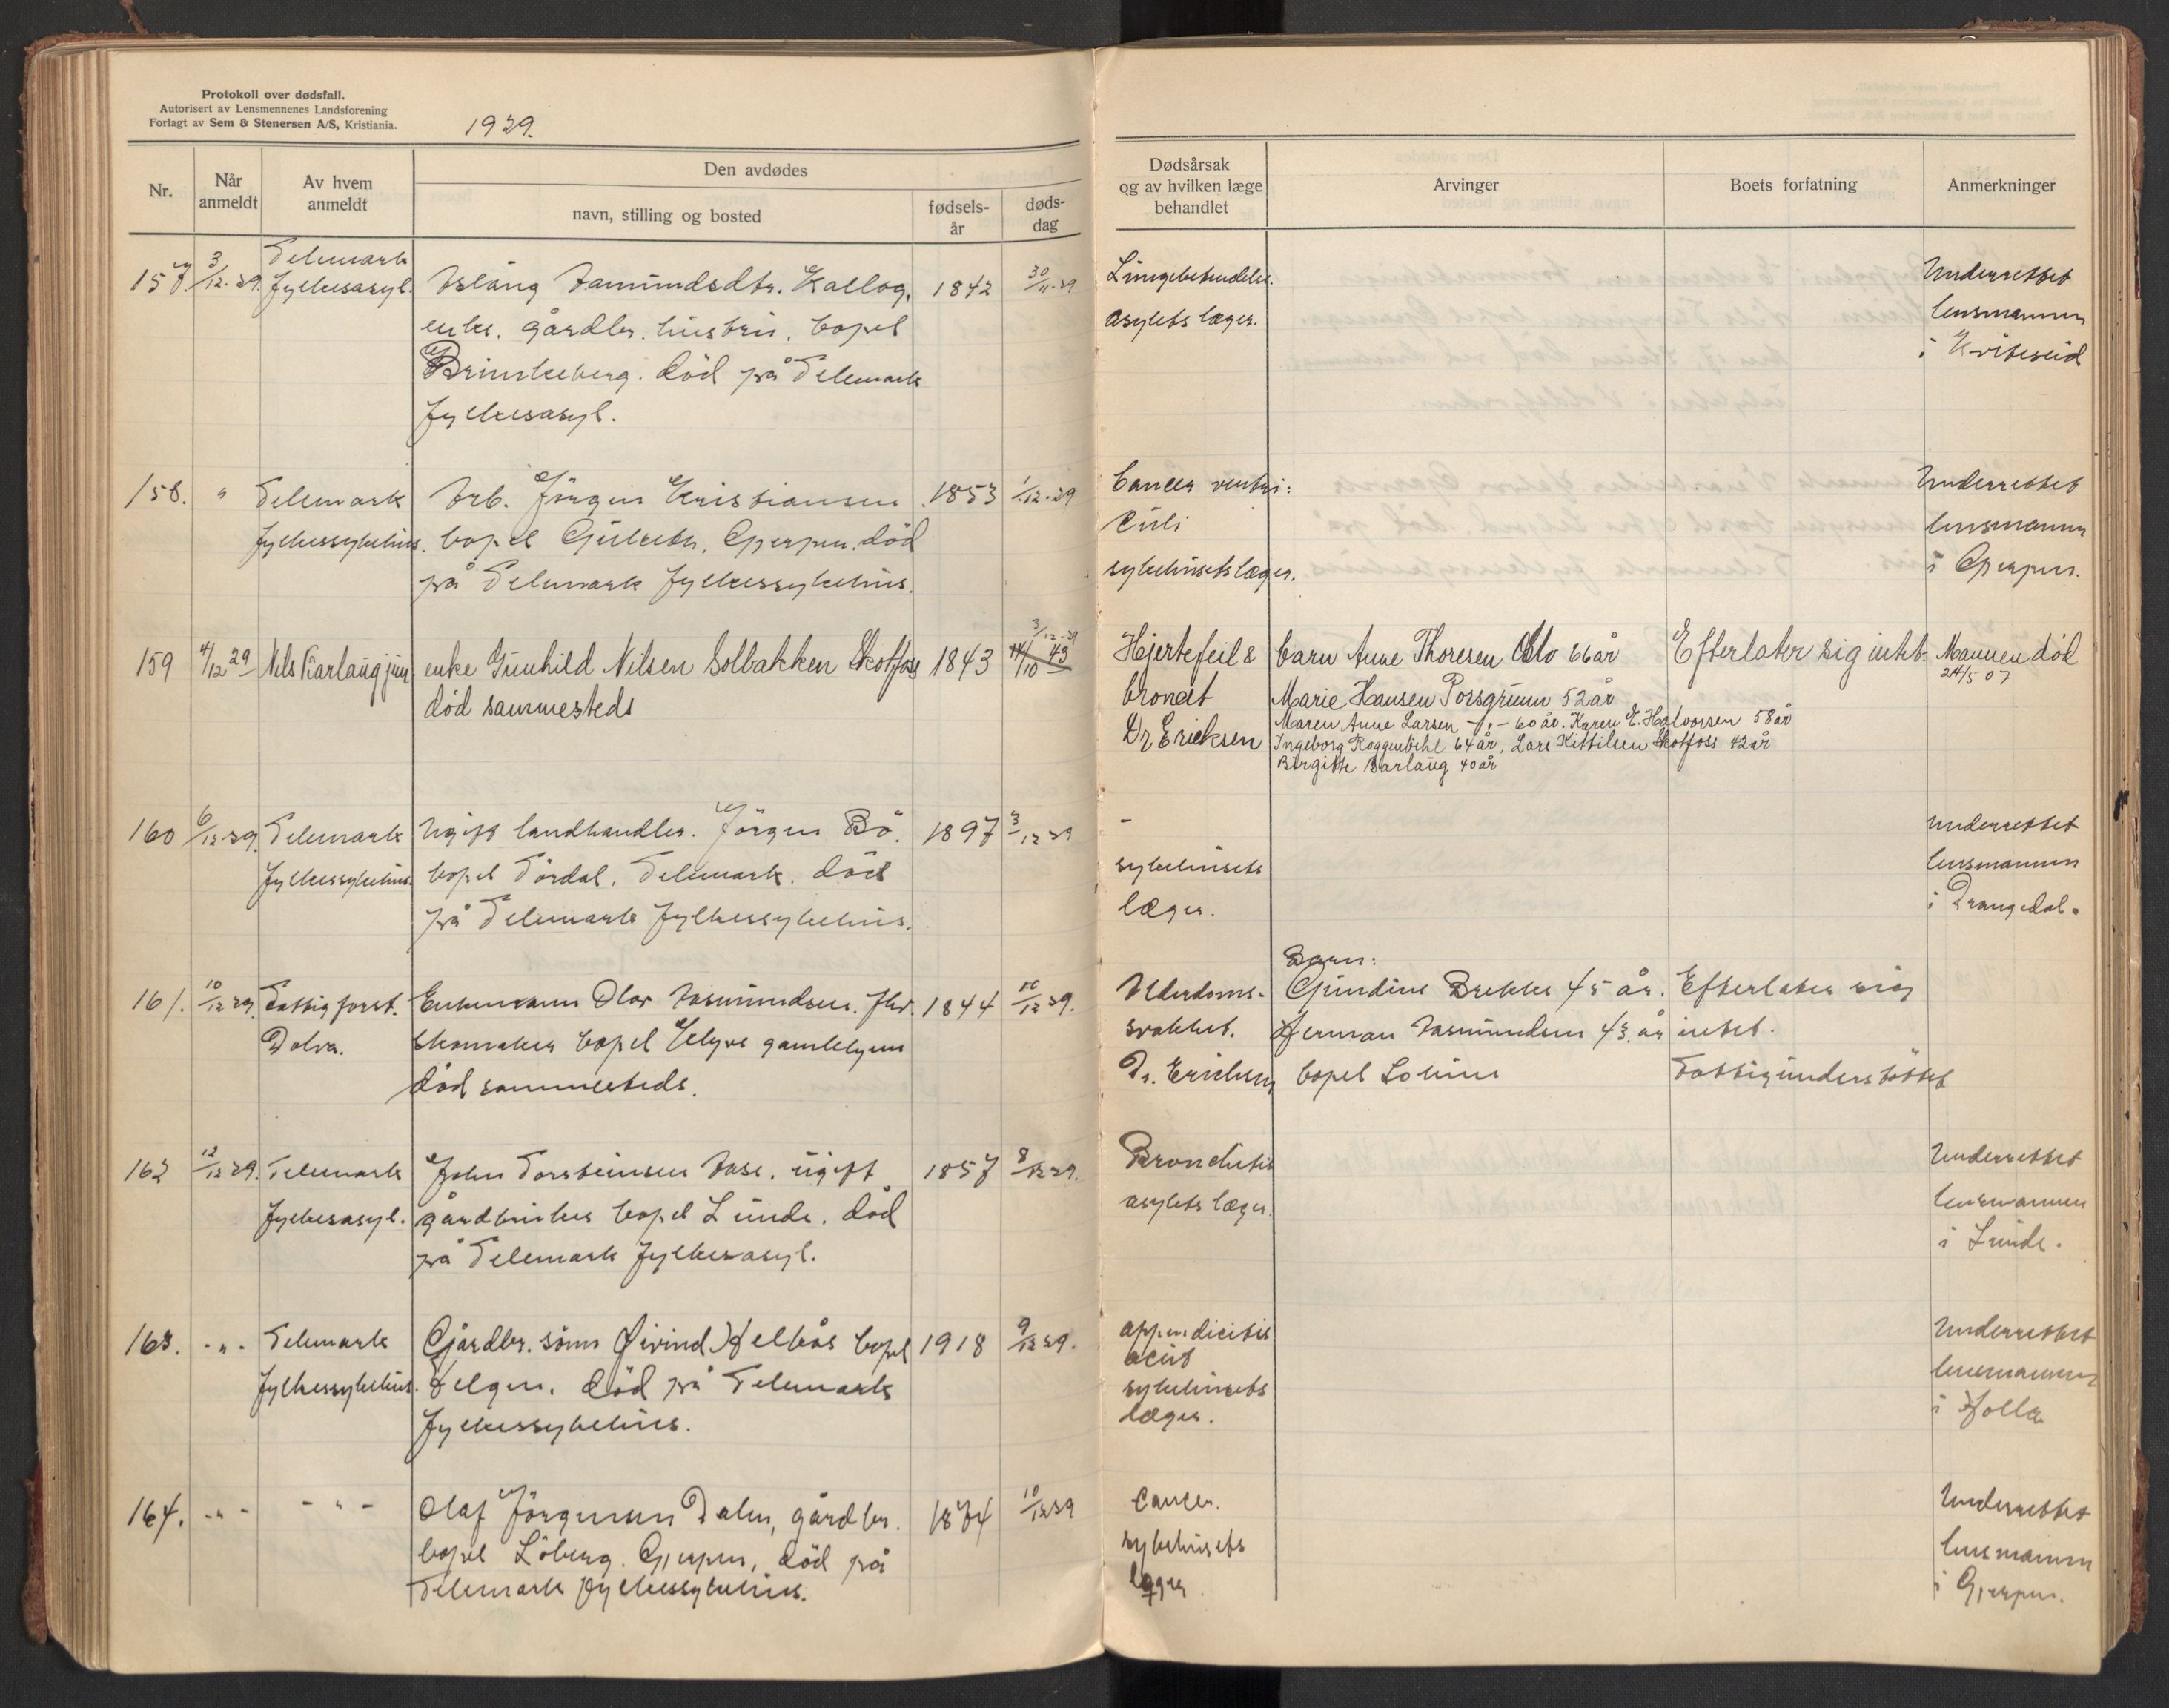 Protokoll over dødsfall.
Autorisert av Lensmennenes Landsforening
Forlagt av Sem & Stenersen A/S, Kristiania.
1929.
Nr.
Når anmeldt
Av hvem anmeldt
Den avdødes
navn, stilling og bosted
fødsels- år
døds- dag
Dødsårsak
og av hvilken læge
behandlet
Arvinger
Boets forfatning
Anmerkninger
157. 3/12-29. Telemark
fylkesasyl. Aslaug Aamundsdtr. Kallog, 1842 30/11-29
enke. gårdbr. hustru. bopel
Brunkeberg. död på Telemark
fylkesasyl.
asylets læger.
Underrettet
lensmannen
i Kviteseid
158. " Telemark Arb. Jörgen Kristiansen 1853 1/12-29
fylkessykehus. bopel Gulseth, Gjerpen. död
på Telemark fylkessykehus.
Cancer ventri:
culi
sykehusets læger.
Underrettet
lensmannen
i Gjerpen.
159 4/12 29 Nils Barlaug jun. enke Gunhild Nilsen Solbakken Skotfoss 1843 3/12-29
död sammesteds
Hjertefeil &
bronkit
Dr Ericksen
barn Anne Thoresen Oslo 66 år
Marie Hansen Porsgrunn 52 år
Maren Anne Larsen -"- 60 år. Karen E. Halvorsen 58 år
Ingeborg Roggenbihl 64 år, Lars Kittilsen Skotfoss 42 år
Birgithe Barlaug 40 år
Efterlater sig intet.
Mannen död
24/5 07
160 6/12-29. Telemark Ugift landhandler. Jörgen Bö. 1897 3/12 29
fylkessykehus. bopel Tördal, Telemark. död
på Telemark fylkessykehus.
-
sykehusets
læger.
Underrettet
lensmannen
i Drangedal.
161. 10/12 29. Fattigforst. Enkemann Olav Aasmundsen. fhv. 1844 10/12 29.
Dolva. skomaker bopel Gamlehjem
död sammesteds.
Alderdoms-
svakhet.
Dr. Erichsen
Barn:
Gundine Brekke 45 år.
Herman Aasmundsen 43. år
bopel Solum
Efterlater sig
intet.
Fattigunderstöttet
162 12/12 29. Telemark John Torsteinsen Aase. ugift 1857 8/12 29.
fylkesasyl. gårdbruker bopel Lunde. död
på Telemark fylkesasyl.
Bronchitis
asylets læger.
Underrettet
lensmannen
i Lunde.
163. -"- Telemark Gårdbr. sönn Øivind Helbås bopel 1918 9/12 29.
fylkessykehus. Helgen. död på Telemark
fylkessykehus.
appendicitis
acut
sykehusets
læger.
Underrettet
lensmannen
i Holla
164. -"- -"- Olaf Jörgensen Dalen, gårdbr. 1874 10/12 29
bopel Löberg. Gjerpen, död på
Telemark fylkessykehus.
Cancer.
sykehusets
læger
Underrettet
lensmannen
i Gjerpen.